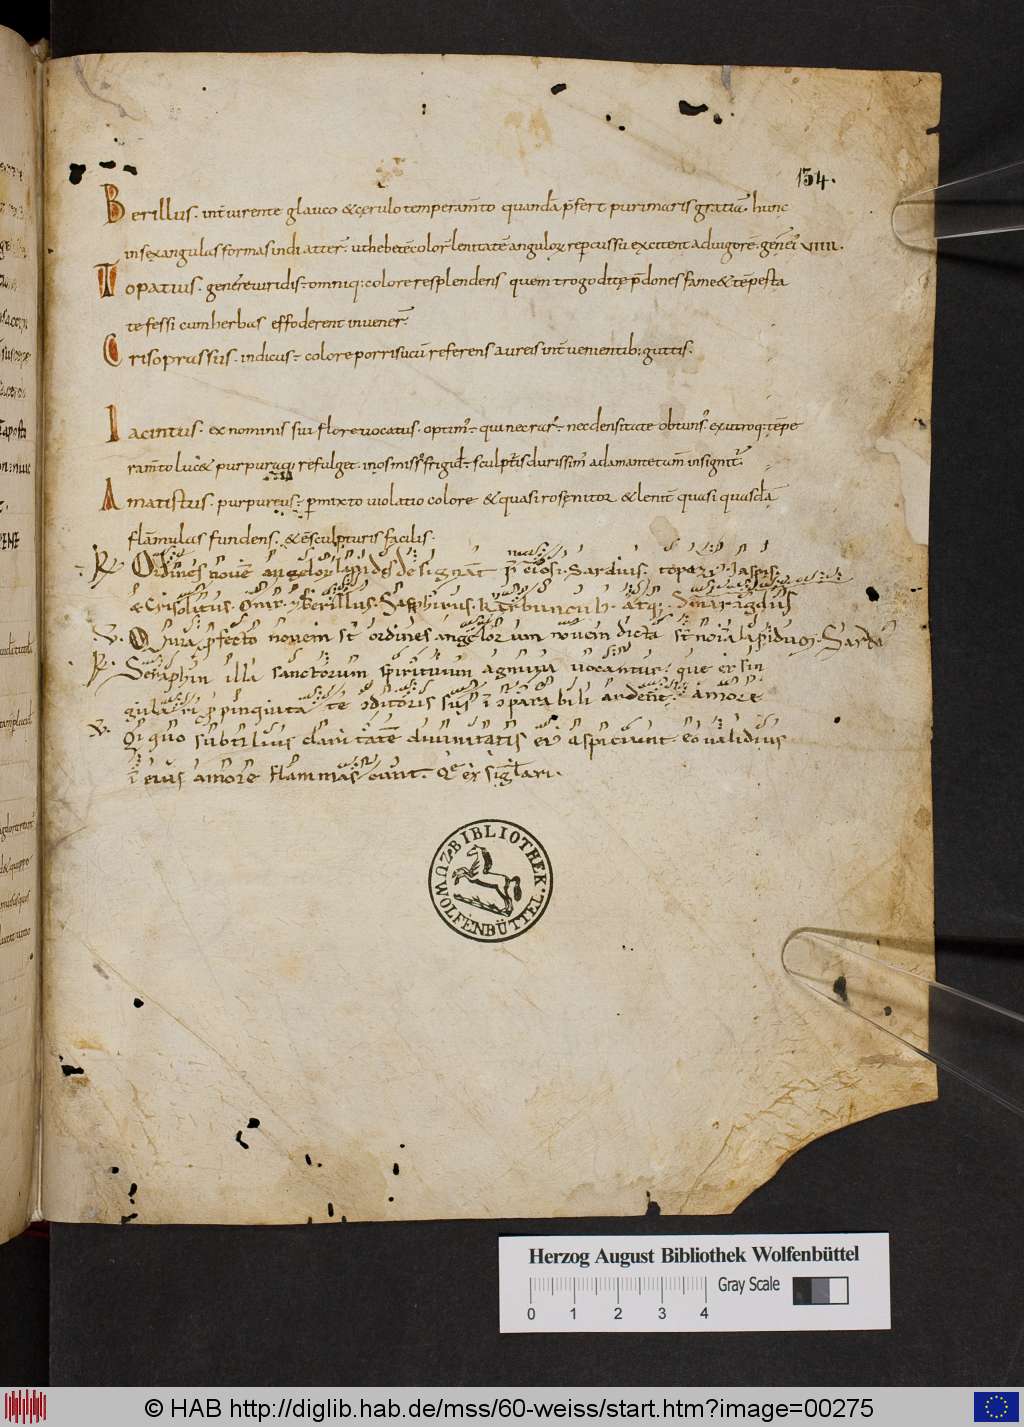 134.
Berillus. int̄ virente glauco & cerulo temperam̄to quandā p̄fert purimaris gratiā. hunc
insexangulas formas indi atter̄. ut hebetē colorē lenitatē anguloꝝ repcussu excitent ad vigorē. genera viiii.
Topatius. genere viridis ÷ omniq; colore resplendens quem trogodite p̄dones fame & tēpesta
te fessi cum herbas effoderent invener̄.
Crisoprassus. indicus ÷ colore porri sucū referens aureis int̄venientib; guttis.
Iacintus. ex nominis sui flore vocatus. optim' ÷ qui nec rar' ÷ nec densitate obtuns'. ex utroq; tēpe
ram̄to luc& purpuraq; refulget. in os miss' frigid' ÷ sculpt̄is durissim' adamante tam̄ insignit'.
Amatistus. purpureus ÷ pmixto violatio colore & quasi rose nitor & lenit̄ quasi quasdā
flāmulas fundens. & ē sculpturis facilis.
R Ordines novē angeloꝝ lapides designant p̄ciosi. Sardius. topazi'. Iaspis.
& Crisolitus. Onix. & Berillus. Sapphirus. Karbunculꝰ. atq; Smaragdus
V. Qura pfecto novem st̄ ordines angelorum novem dicta st̄ noīa lapiduꝫ. Sardi'
R. Seraphin illa sanctorum spirituum agmina vocantur. que ex sin
gulari ppinquitate ↄditoris sui īↄparabili ardent amore
V. Qi quo subtilius claritatē divinitatis ei' aspiciunt. eo validius
ī eius amore flammas cunt. Qe ex singlari.
BIBLIOTHEK ZU WOLFENBÜTTEL.
Herzog August Bibliothek Wolfenbüttel
Gray Scale
0 1 2 3 4
© HAB http://diglib.hab.de/mss/60-weiss/start.htm?image=00275